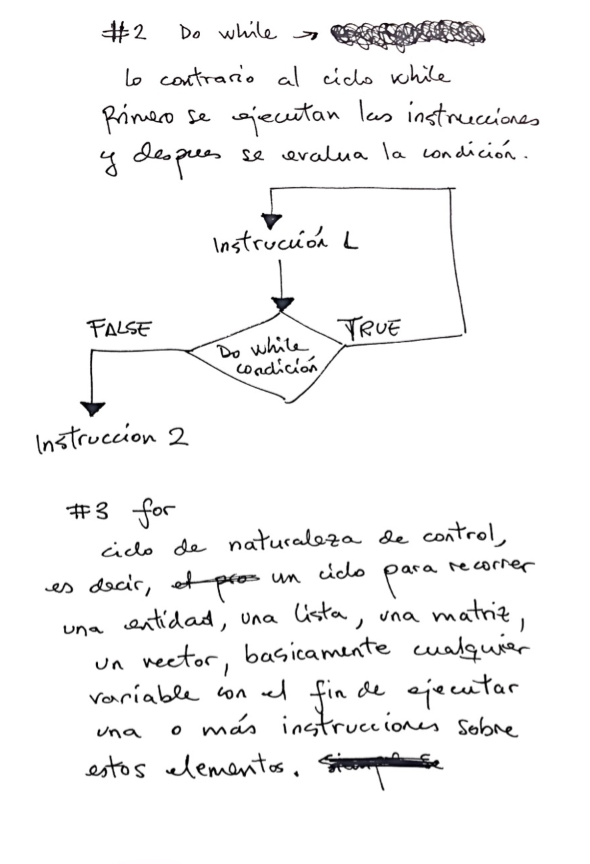 #2 Do while →
Lo contrario al ciclo while
Primero se ejecutan las instrucciones
y despues se evalua la condición.
Instrucción 1
FALSE
TRUE
Do while
condición
Instruccion 2
#3 for
ciclo de naturaleza de control,
es decir, el pro un ciclo para recorrer
una entidad, una lista, una matriz,
un vector, basicamente cualquier
variable con el fin de ejecutar
una o más instrucciones sobre
estos elementos.